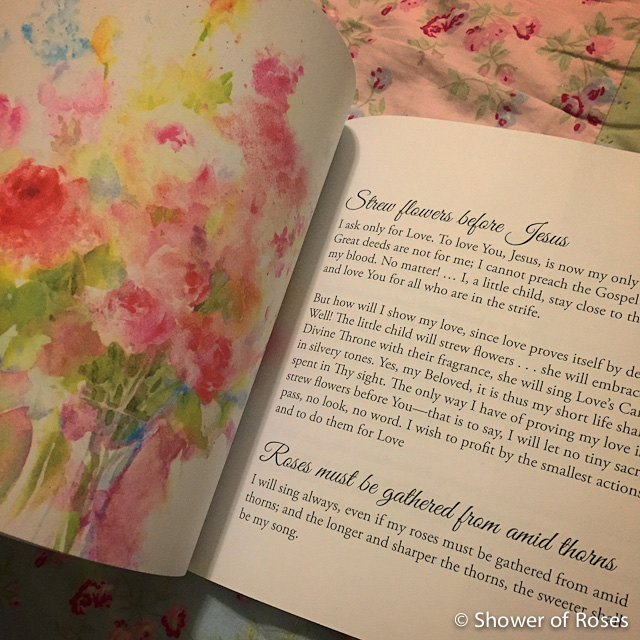 Strew flowers before Jesus
I ask only for Love. To love You, Jesus, is now my only
Great deeds are not for me; I cannot preach the Gospel
my blood. No matter! … I, a little child, stay close to th
and love You for all who are in the strife.
But how will I show my love, since love proves itself by de
Well! The little child will strew flowers . . . she will embrac
Divine Throne with their fragrance, she will sing Love's Ca
in silvery tones. Yes, my Beloved, it is thus my short life sha
spent in Thy sight. The only way I have of proving my love i
strew flowers before You—that is to say, I will let no tiny sacr
pass, no look, no word. I wish to profit by the smallest actions
and to do them for Love
Roses must be gathered from amid thorns
I will sing always, even if my roses must be gathered from amid
thorns; and the longer and sharper the thorns, the sweeter
be my song.
© Shower of Roses